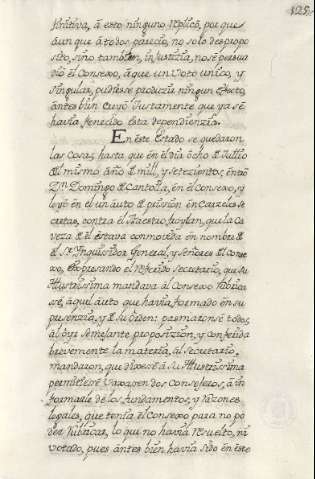 125
trativa, a esto ninguno replicó, por que
aun que à todos pareció, no solo despropo
sito, sino tambien, injusticia, no se persua
dió el Consexo, à que un voto unico, y
singular, pudiese produzir ningun efecto,
antes bien creyó Justamente que ya se
havia fenecido esta dependienzia.
En este Estado se quedaron
las Cosas, hasta que en el dia ocho de Jullio
del mismo año de mill, y setezientos, entró
Dn. Domingo de Cantolla, en el Consexo, y
leyó en el un auto de prision en Carzeles se
cretas, contra el Maestro froylan, que la ca
veza de el estava conmovida en nombre de
el Sr. Inquisidor General, y señores del conse
xo, expresando el referido secretario, que su
Illustrissima mandava al Consexo rubrica
se, aquel auto que havia formado en su
presenzia, y de su orden: pasmaronse todos,
al oyr semejante proposizion, y conferida
brevemente la materia, al secretario,
mandaron, que dixese à su Illustrissima
permitiese pasasen dos Consejeros, à in
formarle de los fundamentos, y razones
legales, que tenia el Consexo para no po
der rubricar, lo que no havia resuelto, ni
votado, pues antes bien havia sido en este